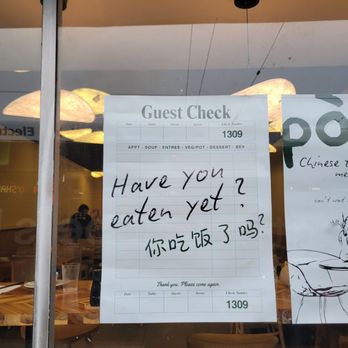 Guest Check
Date Table Guests Server Check Number
1309
APPT - SOUP - ENTREE - VEG/POT - DESSERT - BEV
Have you
eaten yet?
你吃饭了吗?
Thank you. Please come again.
Date Table Guests Server Check Number
1309
Chinese